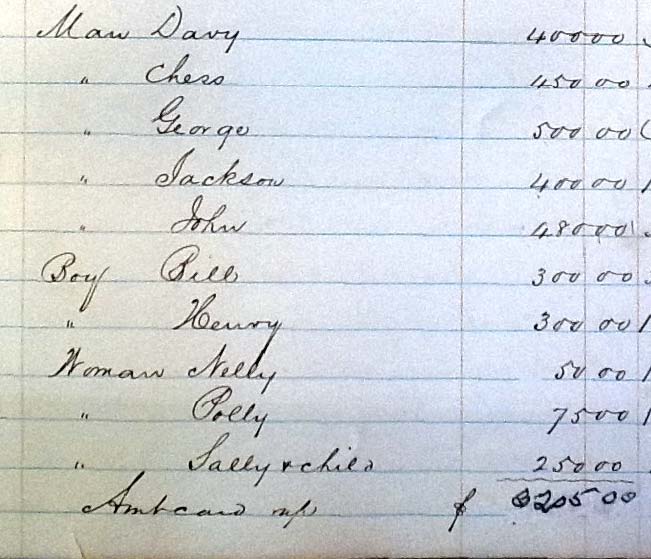 Man Davy 400 00
" Chess 450 00
" George 500 00
" Jackson 400 00
" John 480 00
Boy Bill 300 00
" Henry 300 00
Woman Nelly 50 00
" Polly 75 00
" Sally & child 250 00
Amt card up $ 3205 00